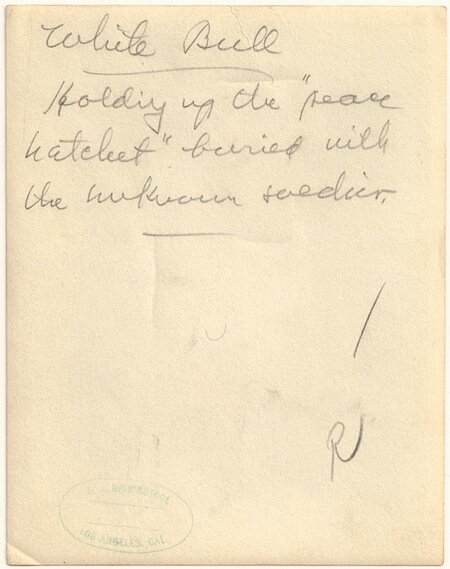 White Bull
Holding up the "peace
hatchet" buried with
the unknown soldier.
/
R
LOS ANGELES, CAL.